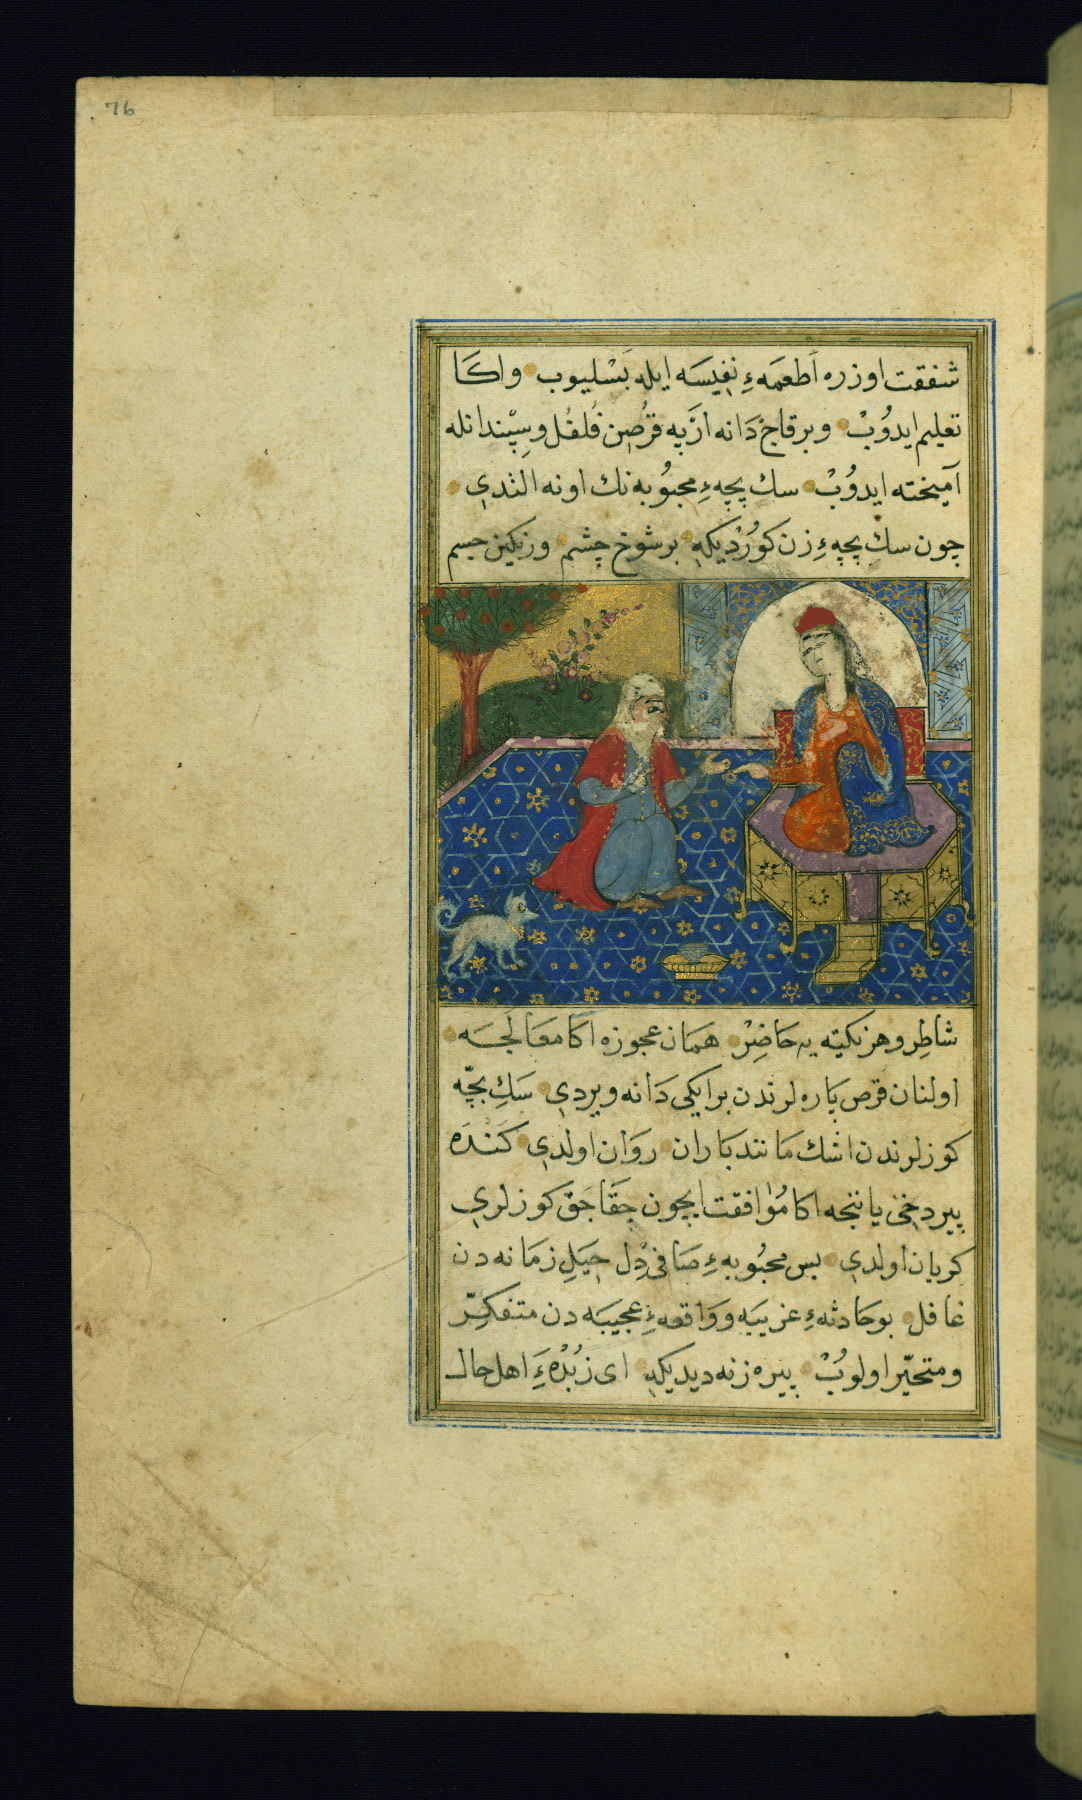 76
شفقت اوزره اَطعمَه ءِ نفِيسَه ايله بَسْليوب واكَا
تعليم ايدوُبْ وبر قاج دَانه ارَّپه قرُصِن فُلفُل وسِپْندانله
آميخته ايدوُبْ سك بچهءِ محبوُبه نك اونه التدي
چون سك بچهءِ زن كوُرْديكه برشوخ چشم وزنكين جسم
شاطِر وهر نكته يه حَاضِرْ همَان عجوزه اكا معَالجَه
اولنان قرص پاره لرندن بر ايكي دَانه ويردي سَكِ بچّه
كوزلرندن اشك مَانند بَاران روَان اولدي كَنْدَه
پير دخى يانجه اكا مُوافقت ايچون جقَا جَق كوزلري
كريان اولدي بس محبُوبهءِ صَافى دِل حِيَلِ زمَانه دن
غافل بو حَادثهءِ غريبَه ووَاقعهءِ عجيبَه دن متفكِّر
ومتحيّر اولوبُ پيره زنه ديديكه اى زُبْدهءَ اهل حال